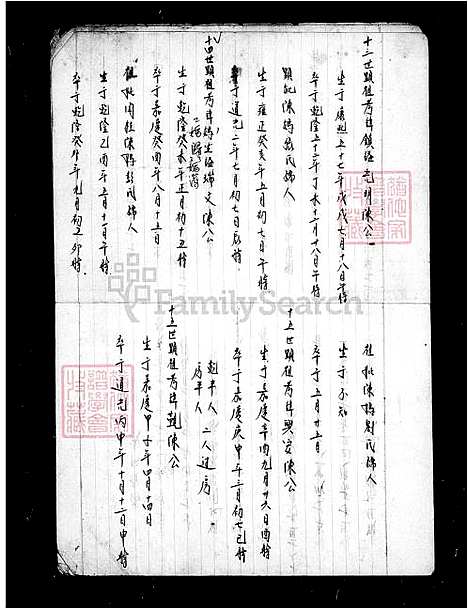 十三世顯祖考諱鎮海 光明陳公
生于康熙五十七年戊戌七月十八日午時
卒于乾隆五十二年丁未十一月十八日午時
顯妣陳媽 氏孺人
生于雍正癸亥年五月初七日午時
卒于道光二年七月初七日辰時
十四世顯祖考諱 生 端文陳公
生于乾隆癸未年正月初十丑時
卒于嘉慶癸酉年八月十五日
祖妣 陳媽彭氏孺人
生于乾隆乙酉年五月十一日午時
卒于乾隆癸丑年九月初二卯時
祖妣陳媽劉氏孺人
生于不知
卒于五月廿五日
十五世顯祖考諱興家陳公
生于嘉慶辛酉九月廿六日酉時
卒于嘉慶庚申年三月初七巳時
房半人 二人過房
十五世顯祖考諱 陳公
生于嘉慶甲子年四月十四日
卒于道光丙申年十月十二日申時
FamilySearch
譜學會
收藏